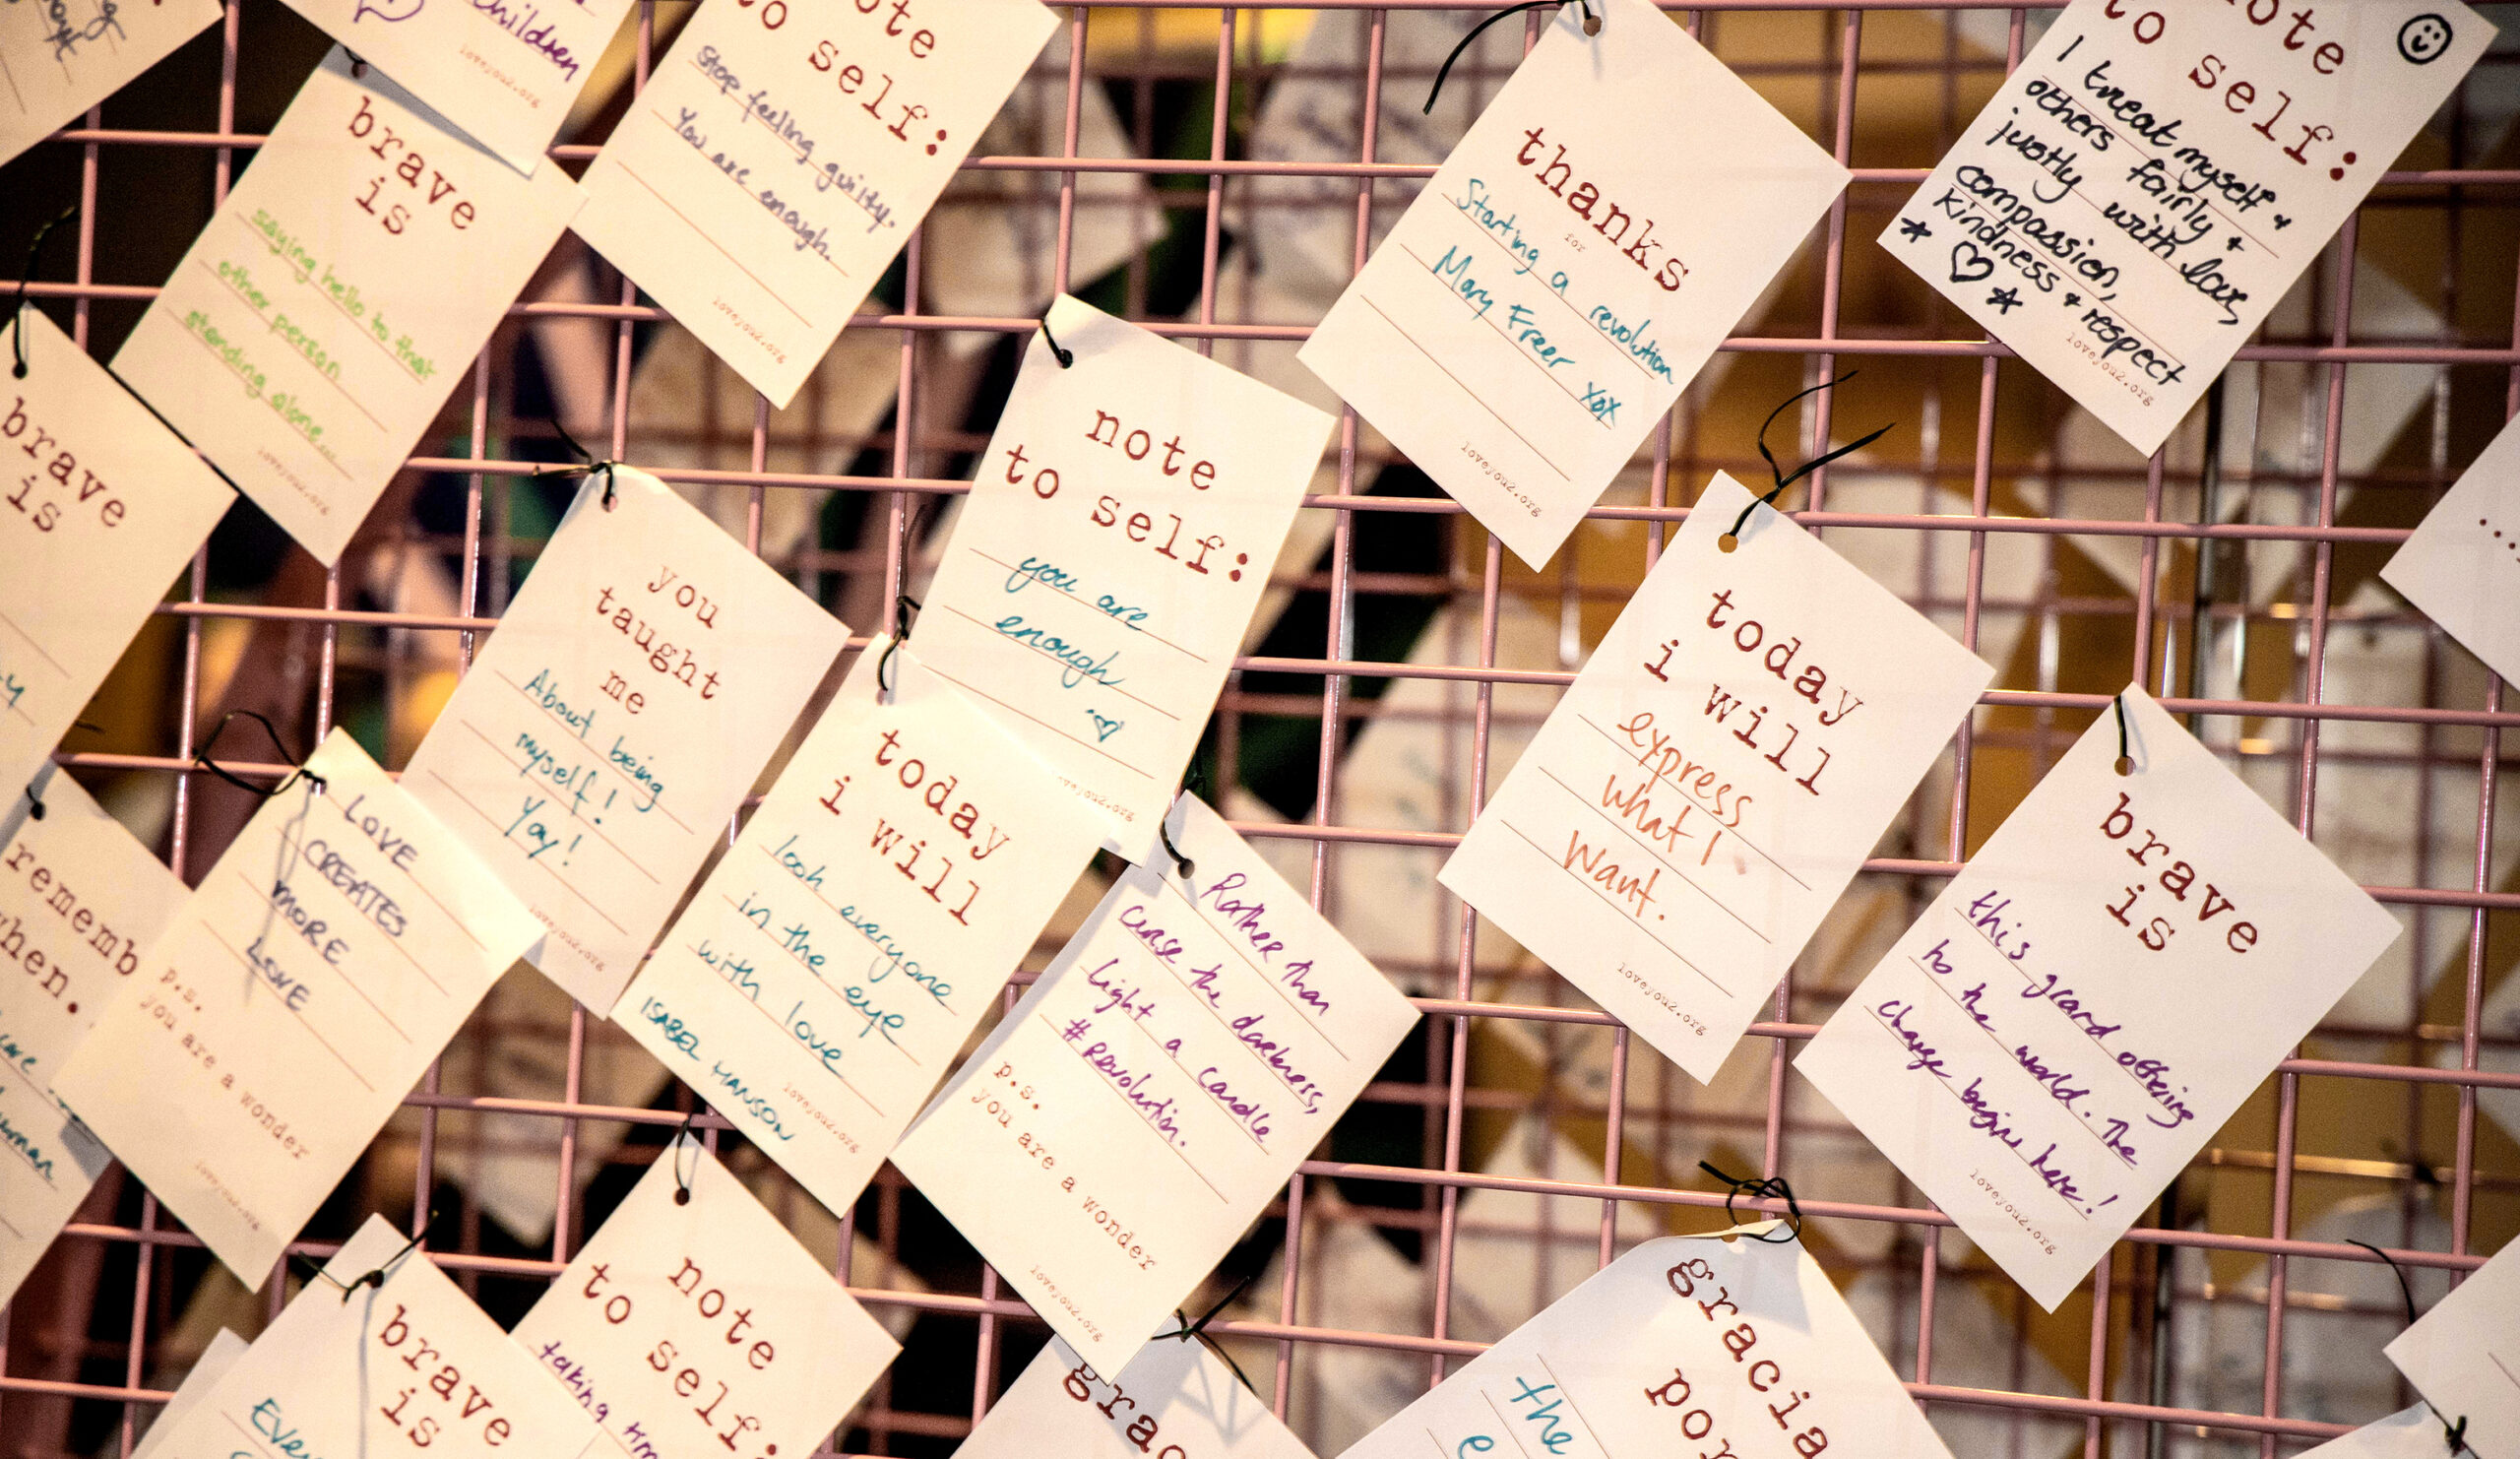 children
loveyou2.org
brave
is
saying hello to that
other person
standing alone...
loveyou2.org
note
to self:
Stop feeling guilty.
You are enough.
loveyou2.org
thanks
for
Starting a revolution
Mary Freer xox
loveyou2.org
note
to self:
I treat myself +
others fairly +
justly with love,
compassion,
kindness + respect
loveyou2.org
brave
is
you
taught
me
About being
myself!
Yay!
loveyou2.org
note
to self:
you are
enough
loveyou2.org
today
i will
express
what I
want.
loveyou2.org
brave
is
this grand offering
to the world. The
change begins here!
loveyou2.org
rememb
when.
care
human
LOVE
CREATES
MORE
LOVE
p.s.
you are a wonder
loveyou2.org
today
i will
look everyone
in the eye
with love
ISABEL HANSON
loveyou2.org
Rather than
curse the darkness,
light a candle
#Revolution.
p.s.
you are a wonder
loveyou2.org
brave
is
Ever
note
to self:
taking
grac
gracia
por
the
e